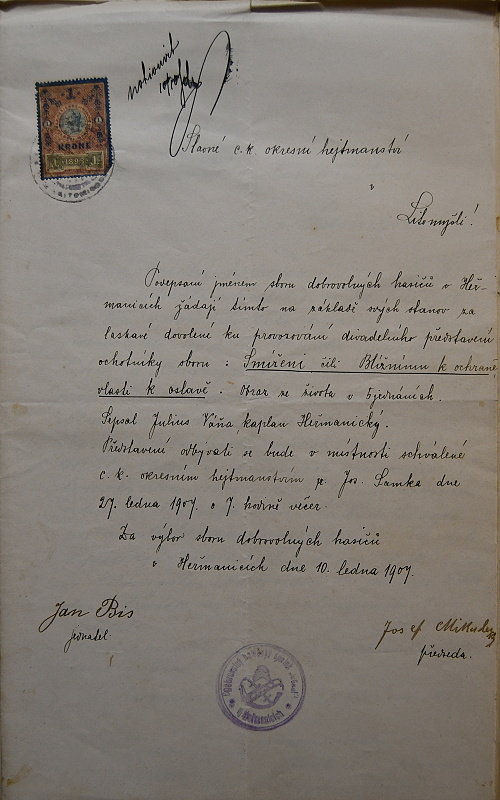 1
KRONE
1898
Slavné c. k. okresní hejtmanství
v
Litomyšli!
Podepsaní jménem sboru dobrovolných hasičů v Heř-
manicích žádají tímto na základě svých stanov za
laskavé dovolení ku provozování divadelního představení
ochotníky sboru: Smíření čili Bližnímu k ochraně
vlasti k oslavě. Obraz ze života v 5 jednáních.
Sepsal Julius Váňa kaplan Heřmanický.
Představení odbývati se bude v místnosti schválené
c. k. okresním hejtmanstvím p. Jos. Samka dne
27. ledna 1907. o 7. hodině večer.
Za výbor sboru dobrovolných hasičů
v Heřmanicích dne 10. ledna 1907.
Jan Bis
jednatel
Josef
předseda.
v Heřmanicích